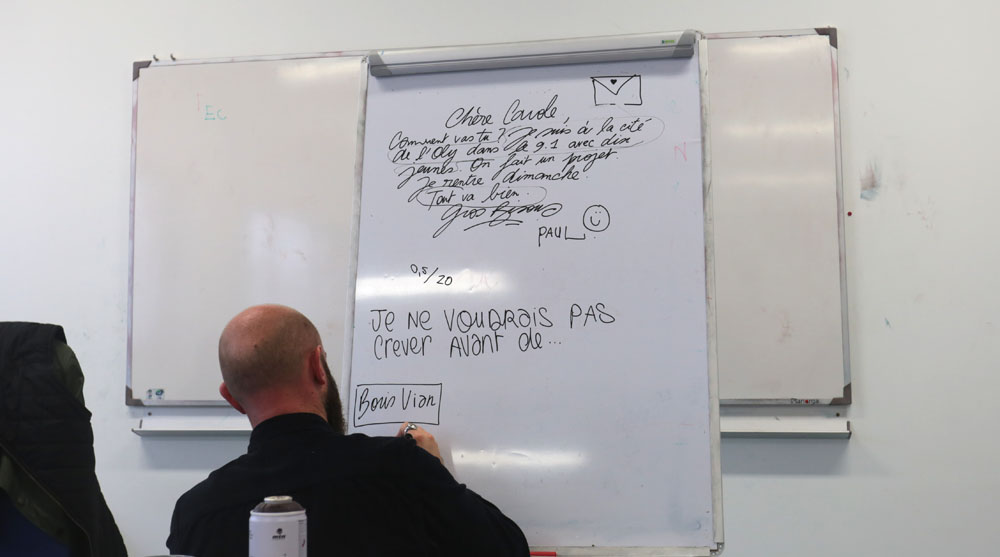 Chère Carole,
Comment vas tu ? Je suis à la cité
de l'Oly dans le 9.1 avec dix
jeunes. On fait un projet.
Je rentre dimanche.
Tout va bien.
Gros Bisous
PAUL
0,5/20
JE NE VOUDRAIS PAS
Crever AVANT de...
Boris Vian
EC
N